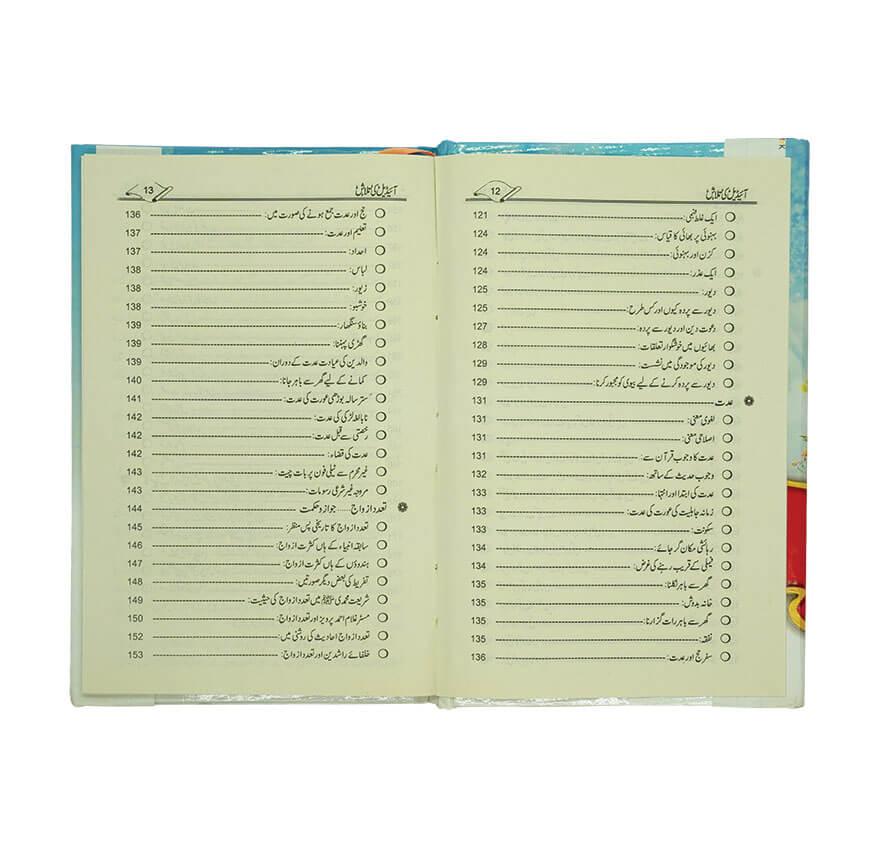 آئیڈیل کی تلاش 12
ایک غلط فہمی: 121
بہنوئی پر بھائی کا قیاس: 124
کزن اور بہنوئی: 124
ایک عذر: 124
دیور: 125
دیور سے پردہ کیوں اور کس طرح: 125
دعوت دین اور دیور سے پردہ: 127
بھائیوں میں خوشگوار تعلقات: 128
دیور کی موجودگی میں نشست: 129
دیور سے پردہ کرنے کے لیے بیوی کو مجبور کرنا: 129
عدت 131
لغوی معنی: 131
اصلاحی معنی: 131
عدت کا وجوب قرآن سے: 131
وجوب حدیث کے ساتھ: 132
عدت کی ابتدا اور انتہا: 133
زمانہ جاہلیت کی عورت کی عدت: 133
سکونت: 133
رہائشی مکان گر جائے: 134
فیملی کے قریب رہنے کی غرض: 134
گھر سے باہر نکلنا: 135
خانہ بدوش: 135
گھر سے باہر رات گزارنا: 135
نفقہ: 135
سفر حج اور عدت: 136
آئیڈیل کی تلاش 13
حج اور عدت جمع ہونے کی صورت میں: 136
تعلیم اور عدت: 137
احداد: 137
لباس: 138
زیور: 138
خوشبو: 138
بناؤ سنگھار: 139
گھڑی پہننا: 139
والدین کی عیادت عدت کے دوران: 139
کمانے کے لیے گھر سے باہر جانا: 140
ستر سالہ بوڑھی عورت کی عدت: 141
نابالغہ لڑکی کی عدت: 142
رخصتی سے قبل عدت: 142
عدت کی قضاء: 142
غیر محرم سے ٹیلی فون پر بات چیت: 143
مروجہ غیر شرعی رسومات: 143
تعدد ازواج ..... جواز و حکمت 144
تعدد ازواج کا تاریخی پس منظر: 145
سابقہ انبیاء کے ہاں کثرت ازواج: 146
ہندوؤں کے ہاں کثرت ازواج: 147
تفریط کی بعض دیگر صورتیں: 148
شریعت محمدی ﷺ میں تعدد ازواج کی حیثیت: 149
مسٹر غلام احمد پرویز اور تعدد ازواج: 150
تعدد ازواج احادیث کی روشنی میں: 152
خلفائے راشدین اور تعدد ازواج: 153